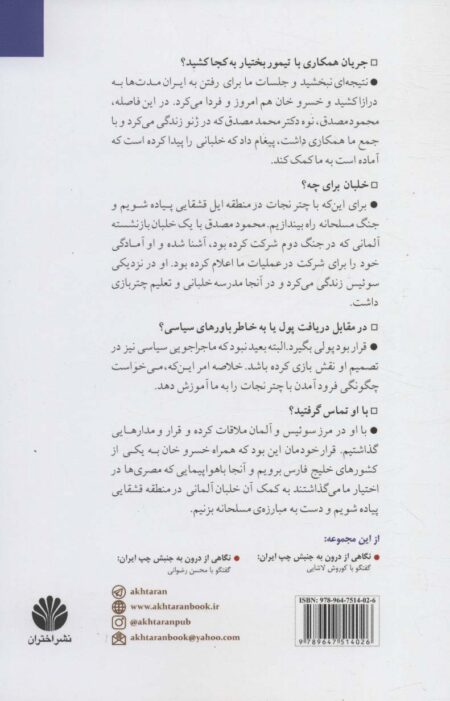 □ جریان همکاری با تیمور بختیار به کجا کشید؟
● نتیجه‌ای نبخشید و جلسات ما برای رفتن به ایران مدت‌ها به
درازا کشید و خسرو خان هم امروز و فردا می‌کرد. در این فاصله،
محمود مصدق، نوه دکتر محمد مصدق که در ژنو زندگی می‌کرد و با
جمع ما همکاری داشت، پیغام داد که خلبانی را پیدا کرده است که
آماده است به ما کمک کند.
□ خلبان برای چه؟
● برای این‌که با چتر نجات در منطقه ایل قشقایی پیاده شویم و
جنگ مسلحانه راه بیندازیم. محمود مصدق با یک خلبان بازنشسته
آلمانی که در جنگ دوم شرکت کرده بود، آشنا شده و او آمادگی
خود را برای شرکت در عملیات ما اعلام کرده بود. او در نزدیکی
سوئیس زندگی می‌کرد و در آنجا مدرسه خلبانی و تعلیم چتربازی
داشت.
□ در مقابل دریافت پول یا به خاطر باورهای سیاسی؟
● قرار بود پولی بگیرد. البته بعید نبود که ماجراجویی سیاسی نیز در
تصمیم او نقش بازی کرده باشد. خلاصه امر این‌که، می‌خواست
چگونگی فرود آمدن با چتر نجات را به ما آموزش دهد.
□ با او تماس گرفتید؟
● با او در مرز سوئیس و آلمان ملاقات کرده و قرار و مدارهایی
گذاشتیم. قرار خودمان این بود که همراه خسرو خان به یکی از
کشورهای خلیج فارس برویم و آنجا با هواپیمایی که مصری‌ها در
اختیار ما می‌گذاشتند به کمک آن خلبان آلمانی در منطقه قشقایی
پیاده شویم و دست به مبارزه‌ی مسلحانه بزنیم.
از این مجموعه:
● نگاهی از درون به جنبش چپ ایران:
گفتگو با کوروش لاشایی
● نگاهی از درون به جنبش چپ ایران:
گفتگو با محسن رضوانی
akhtaran
www.akhtaranbook.ir
@akhtaranpub
akhtaranbook@yahoo.com
ISBN: 978-964-7514-02-6
9 789647 514026
نشر اختران